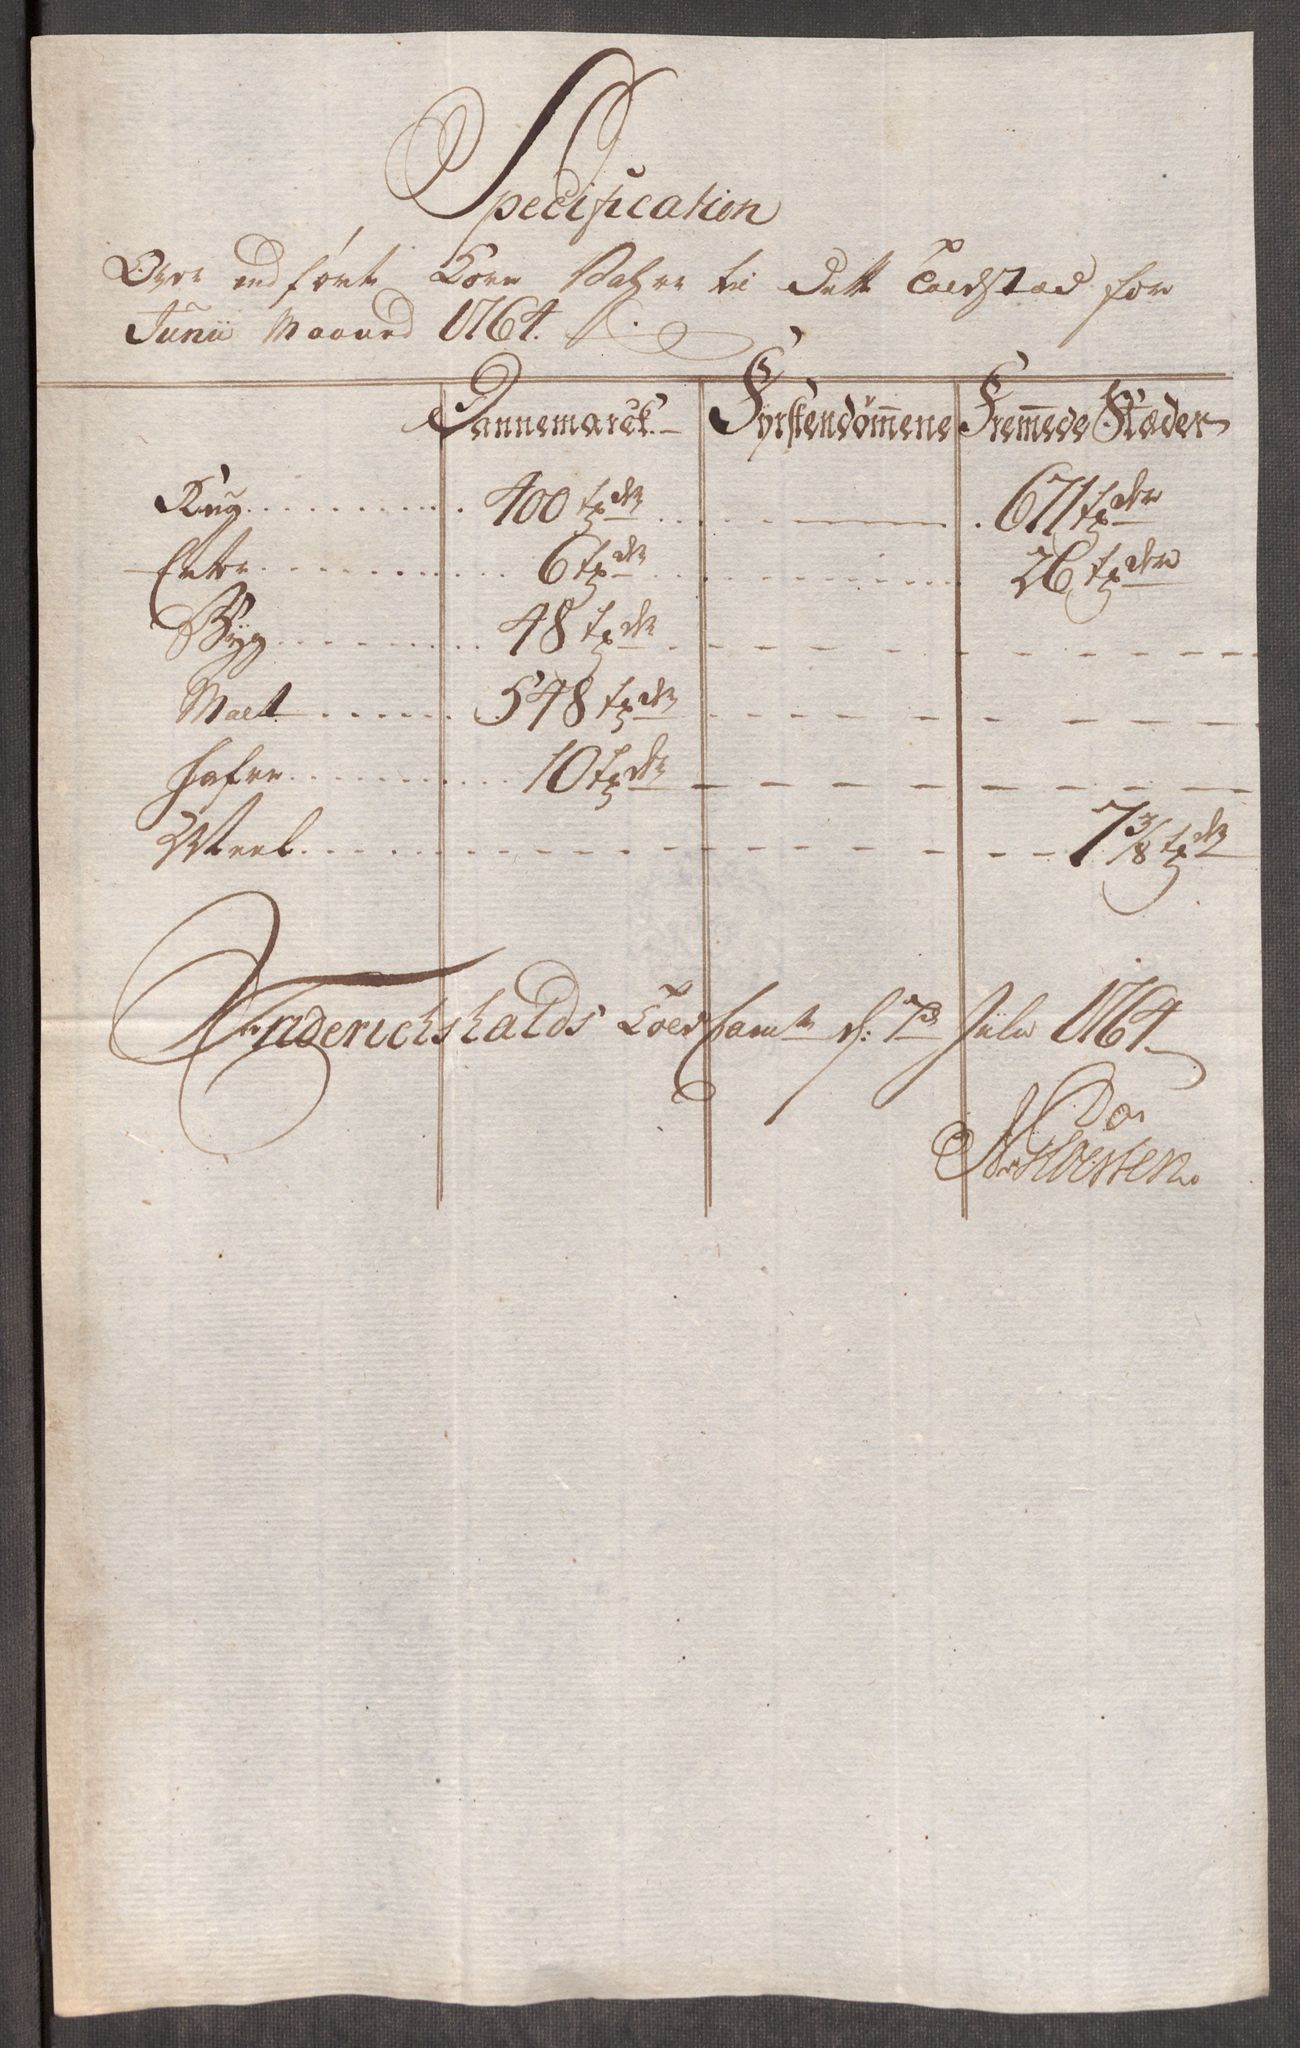 Specification
Over indförte Korn Vahre til Dette Toldstæd for
Junii Maaned 1764.
Dannemarck Fyrstendömene Fremede Stæder
Rug 400 tdr 671 tdr
Erter 6 tdr 26 tdr
Byg 48 tdr
Malt 548 tdr
Hafre 10 tdr
Meel 7 3/8 tdr
Friderichshalds Told d: 7de Julii 1764